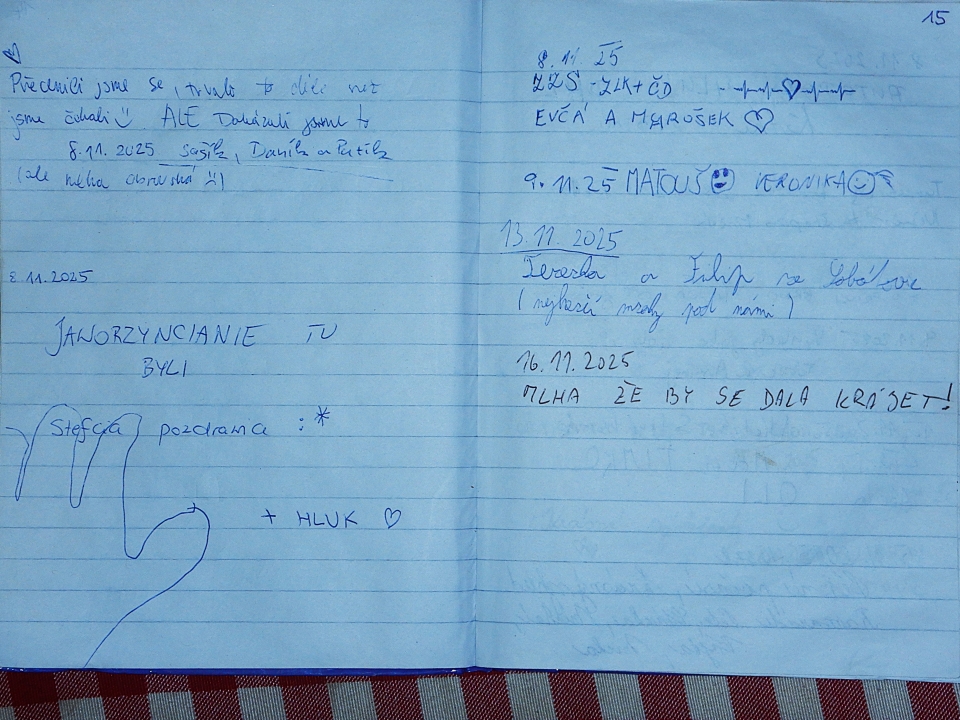 Předníčí jsme se, trvalo to déle než
jsme čekali ALE Dokázali jsme to
8.11.2025 Sašík, Daník a Patik
(ale mlha obrovská :))
8.11.2025
JAWORZYNCIANIE TU
BYLI
Stefcia pozdrawia :*
+ HLUK ♡
15
8.11.25
ZZS - ZLK + ČD
EVČA A MAROŠEK ♡
9.11.25 MATOUŠ VERONIKA
13.11.2025
Terezka a Filip ze
(nejhezčí mraky pod námi)
16.11.2025
MLHA ŽE BY SE DALA KRÁJET!